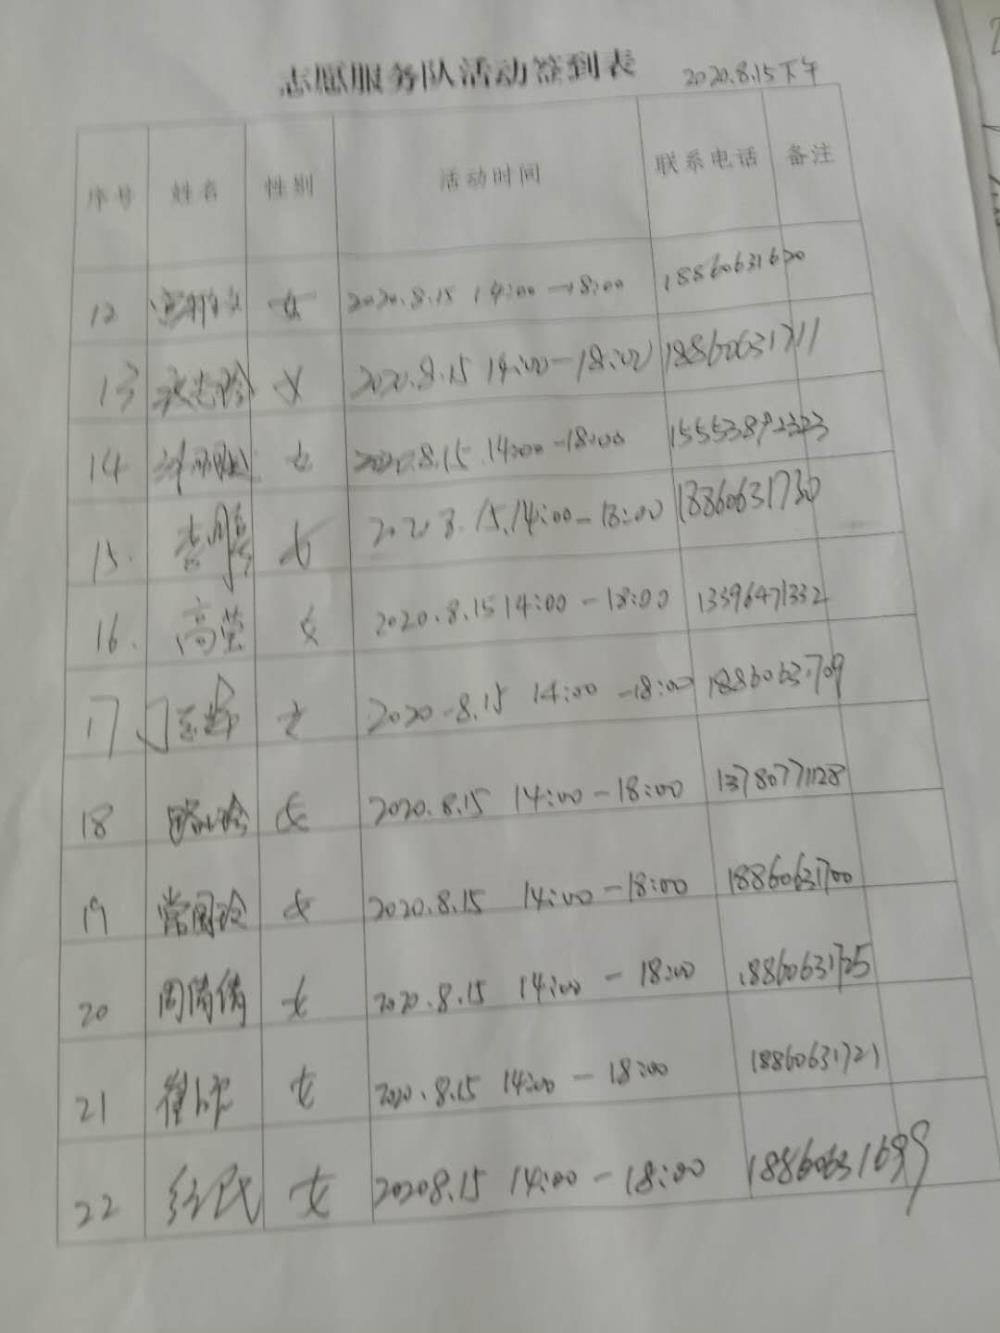 志愿服务队活动签到表 2020.8.15下午
序号 姓名 性别 活动时间 联系电话 备注
12 女 2020.8.15 14:00-18:00 18860631620
13 女 2020.8.15 14:00-18:00 18860631711
14 女 2020.8.15 14:00-18:00
15. 女 2020 8.15.14:00-18:00 18860631730
16. 高莹 女 2020.8.15 14:00-18:00 13396471332
17 女 2020-8.15 14:00-18:00
18 女 2020.8.15 14:00-18:00 13780771128
19 女 2020.8.15 14:00-18:00 18860631700
20 周倩倩 女 2020.8.15 14:00-18:00 18860631725
21 女 2020.8.15 14:00-18:00 18860631721
22 女 20208.15 14:00-18:00 18860631699